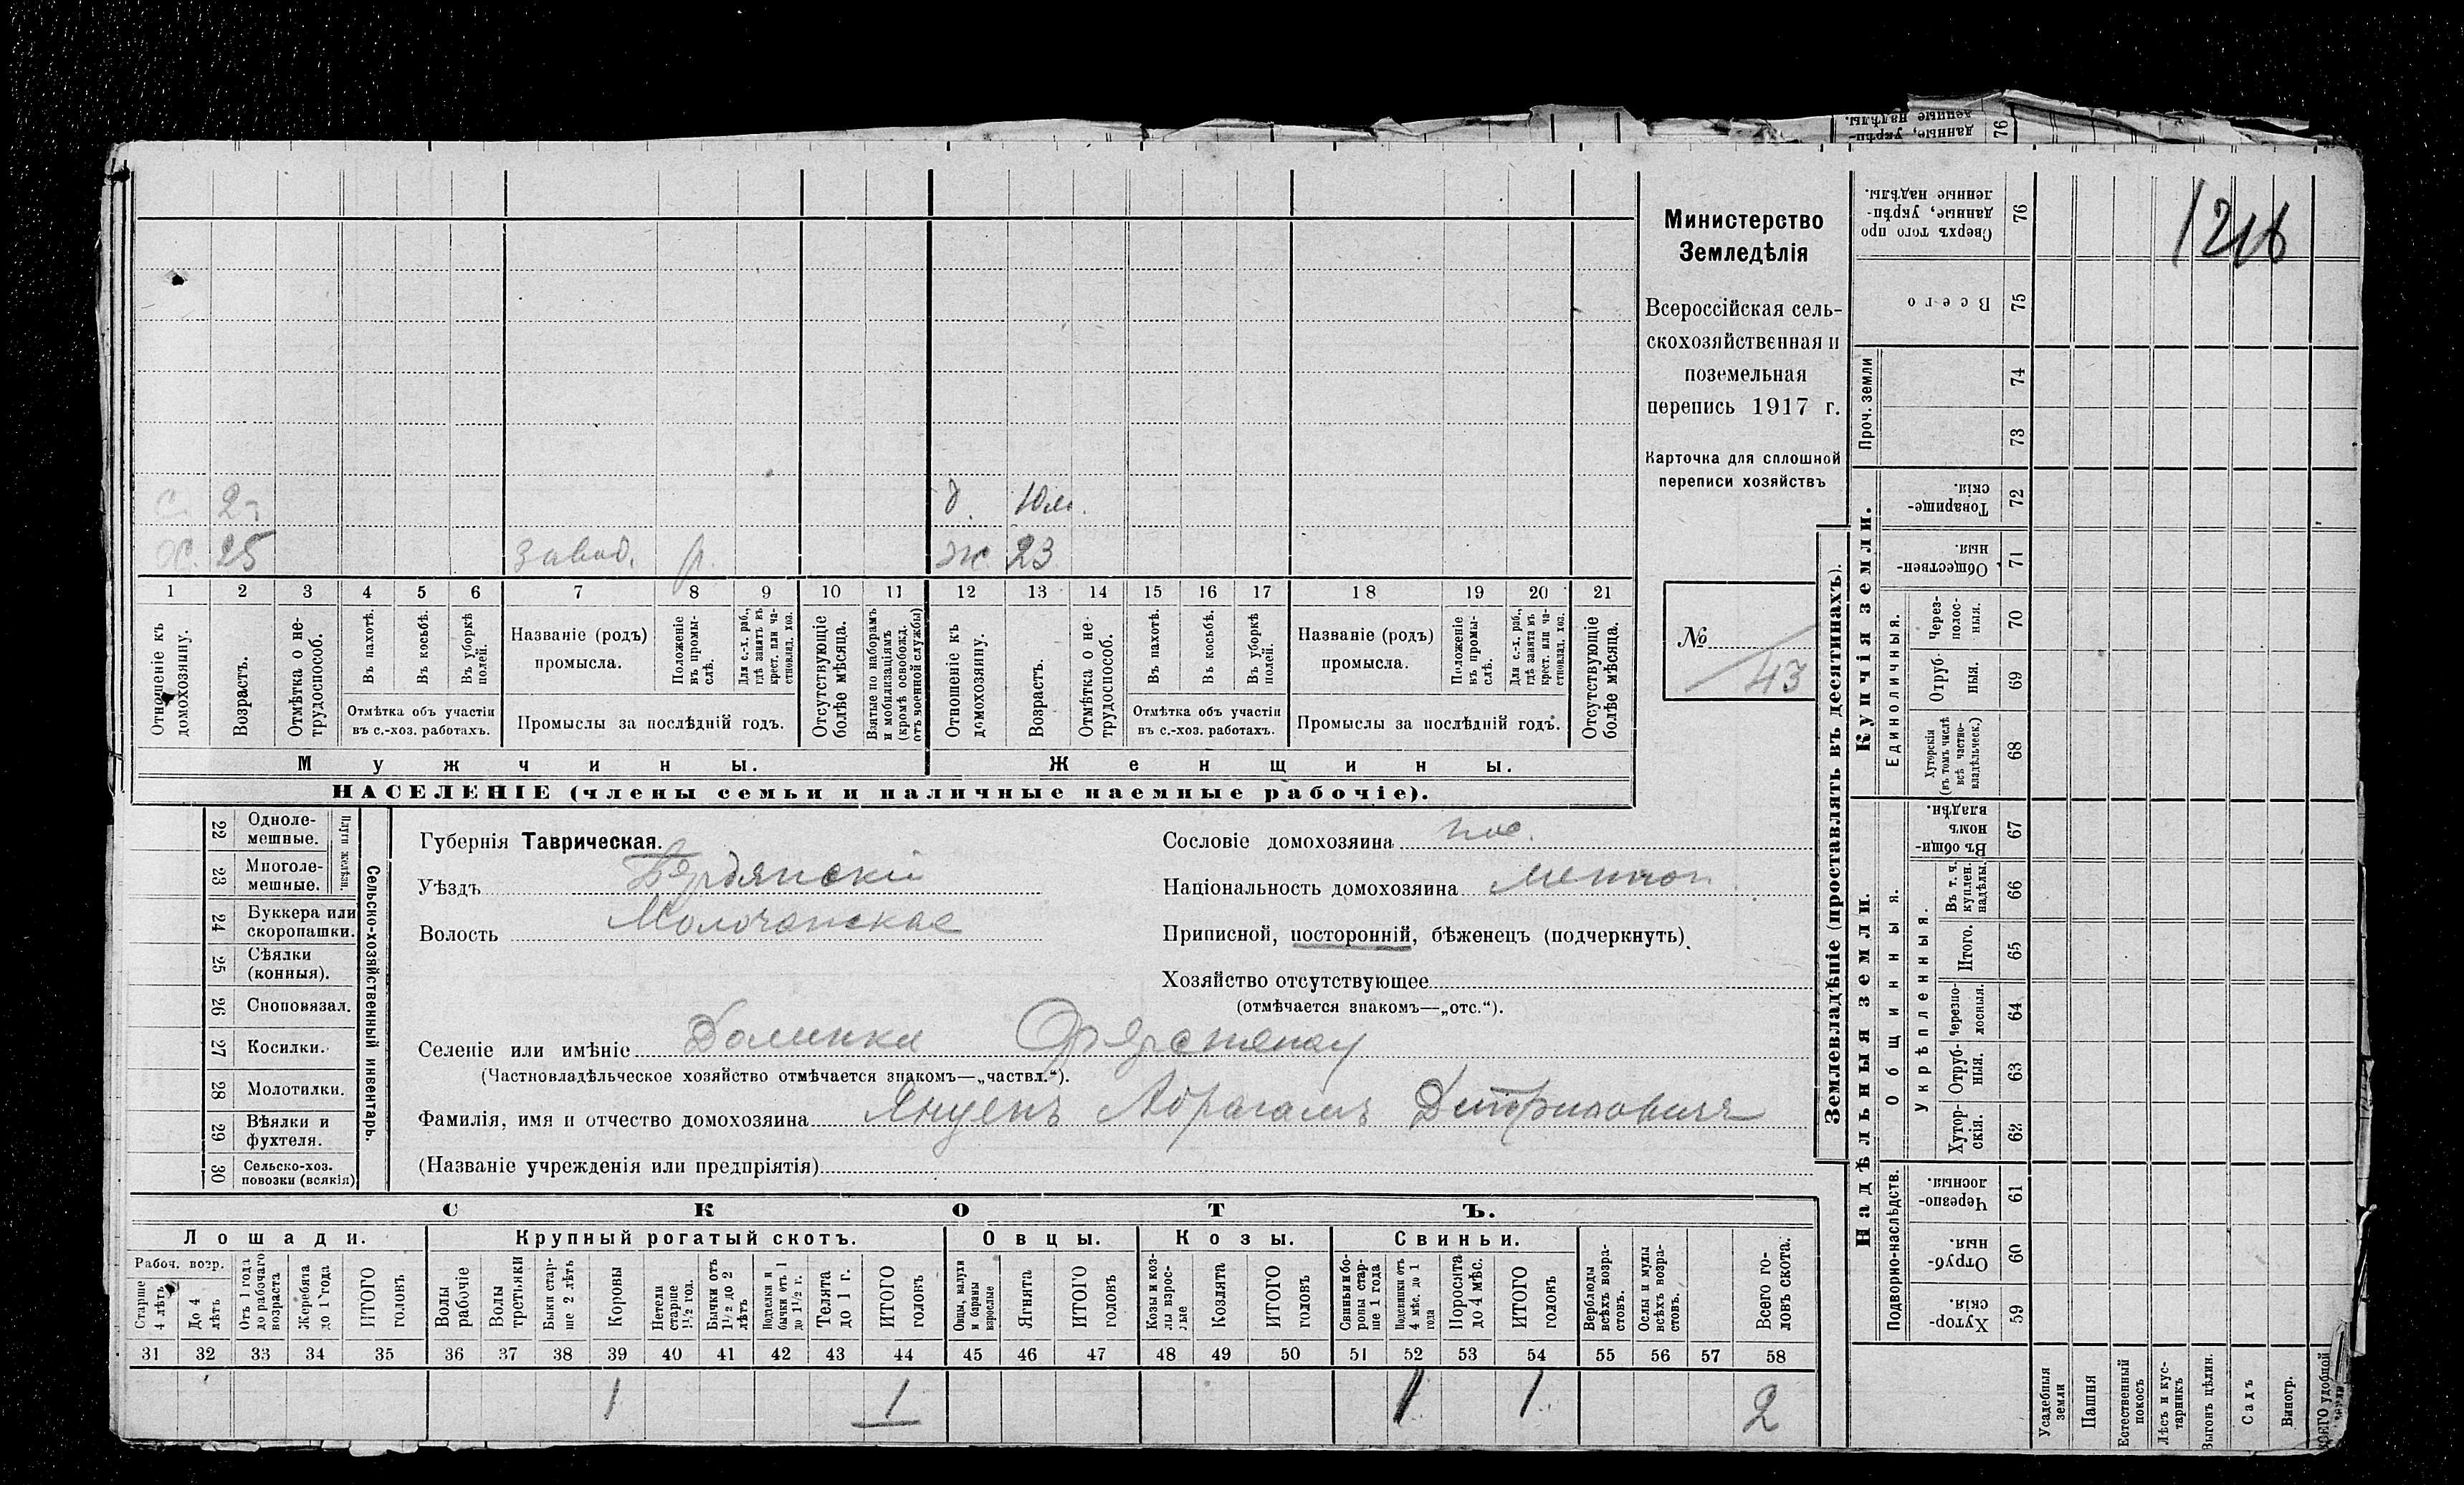 Министерство
Земледѣлія
Всероссійская сель-
скохозяйственная и
поземельная
перепись 1917 г.
Карточка для сплошной
переписи хозяйствъ
№
43
1216
2
д. 10м.
25 завод. р. ж. 23
1 2 3 4 5 6 7 8 9 10 11 12 13 14 15 16 17 18 19 20 21
Отношеніе къ домохозяину.
Возрастъ.
Отмѣтка о не-
трудоспособ.
Въ пахотѣ.
Въ косьбѣ.
Въ уборкѣ
полей.
Отмѣтка объ участіи
въ с.-хоз. работахъ.
Названіе (родъ)
промысла.
Положеніе
въ промы-
слѣ.
Для с.-х. раб.,
гдѣ занятъ въ
крест. или ча-
стновлад. хоз.
Промыслы за послѣдній годъ.
Отсутствующіе
болѣе мѣсяца.
Взятые по наборамъ
и мобилизаціямъ
(кромѣ освобожд.
отъ военной службы)
Отношеніе къ
домохозяину.
Возрастъ.
Отмѣтка о не-
трудоспособ.
Въ пахотѣ.
Въ косьбѣ.
Въ уборкѣ
полей.
Отмѣтка объ участіи
въ с.-хоз. работахъ.
Названіе (родъ)
промысла.
Положеніе
въ промы-
слѣ.
Для с.-х. раб.,
гдѣ занята въ
крест. или ча-
стновлад. хоз.
Промыслы за послѣдній годъ.
Отсутствующіе
болѣе мѣсяца.
Мужчины.
Женщины.
НАСЕЛЕНІЕ (члены семьи и наличные наемные рабочіе).
22 Однолe-
мешные.
23 Многоле-
мешные.
Плуги желѣзн.
24 Буккера или
скоропашки.
25 Сѣялки
(конныя).
26 Сноповязал.
27 Косилки.
28 Молотилки.
29 Вѣялки и
фухтеля.
30 Сельско-хоз.
повозки (всякія)
Сельско-хозяйственный инвентарь.
Губернія Таврическая.
Уѣздъ Бердянскій
Волость Молочанская
Сословіе домохозяина пос.
Національность домохозяина меннон
Приписной, посторонній, бѣженецъ (подчеркнуть).
Хозяйство отсутствующее
(отмѣчается знакомъ—„отс.“).
Селеніе или имѣніе Долинка Фюрстенау
(Частновладѣльческое хозяйство отмѣчается знакомъ—„частвл.“).
Фамилія, имя и отчество домохозяина Янценъ Абрагамъ Дитриховичъ
(Названіе учрежденія или предпріятія)
СКОТЪ.
Лошади.
Крупный рогатый скотъ.
Овцы.
Козы.
Свиньи.
Рабоч. возр.
Старше
4 лѣтъ
До 4
лѣтъ
Отъ 1 года
до рабочаго
возраста
Жеребята
до 1 года
ИТОГО
головъ
Волы
рабочіе
Волы
третьяки
Быки стар-
ше 2 лѣтъ
Коровы
Нетели
старше
1½ год.
Бычки отъ
1½ до 2
лѣтъ
Подтелки и
бычки отъ 1
до 1½ г.
Телята
до 1 г.
ИТОГО
головъ
Овцы, валухи
и бараны
взрослые
Ягнята
ИТОГО
головъ
Козы и коз-
лы взрос-
лые
Козлята
ИТОГО
головъ
Свиньи и бо-
ровы стар-
ше 1 года
Подсвинки отъ
4 мѣс. до 1
года
Поросята
до 4 мѣс.
ИТОГО
головъ
Верблюды
всѣхъ возра-
стовъ.
Ослы и мулы
всѣхъ возра-
стовъ.
Всего го-
ловъ скота.
31 32 33 34 35 36 37 38 39 40 41 42 43 44 45 46 47 48 49 50 51 52 53 54 55 56 57 58
1 1 1 1 2
Землевладѣніе (проставлять въ десятинахъ).
Купчія земли.
Надѣльныя земли.
Проч. земли
Единоличныя.
Общинныя.
Укрѣпленныя.
Подворно-наслѣдств.
Сверхъ того про
данные, укрѣп-
ленные надѣлы. 76
Всего 75
74
73
Товарище-
скія. 72
Обществен-
ныя. 71
Через-
полос-
ныя. 70
Отруб-
ныя. 69
Хуторскія
(въ томъ числѣ
всѣ частно-
владѣльческ.) 68
Въ общи-
номъ
владѣн. 67
Въ т. ч.
куплен.
надѣлы. 66
Итого. 65
Черезпо-
лосныя. 64
Отруб-
ныя. 63
Хутор-
скія. 62
Черезпо-
лосныя. 61
Отруб-
ныя. 60
Хутор-
скія. 59
Усадебныя
земли
Пашня
Естественный
покосъ
Лѣсъ и кус-
тарникъ
Выгонъ цѣлин.
Садъ
Виногр.
данные, укрѣп-
ленные надѣлы.
76